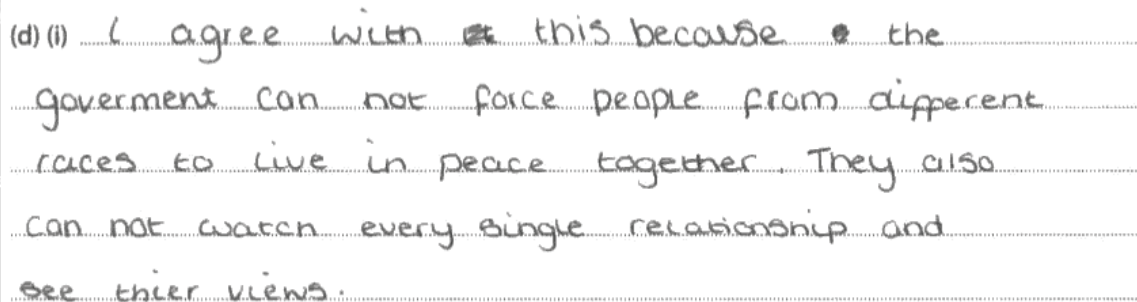 (d) (i) I agree with this because the
goverment can not force people from different
races to live in peace together. They also
can not watch every single relationship and
see thier views.